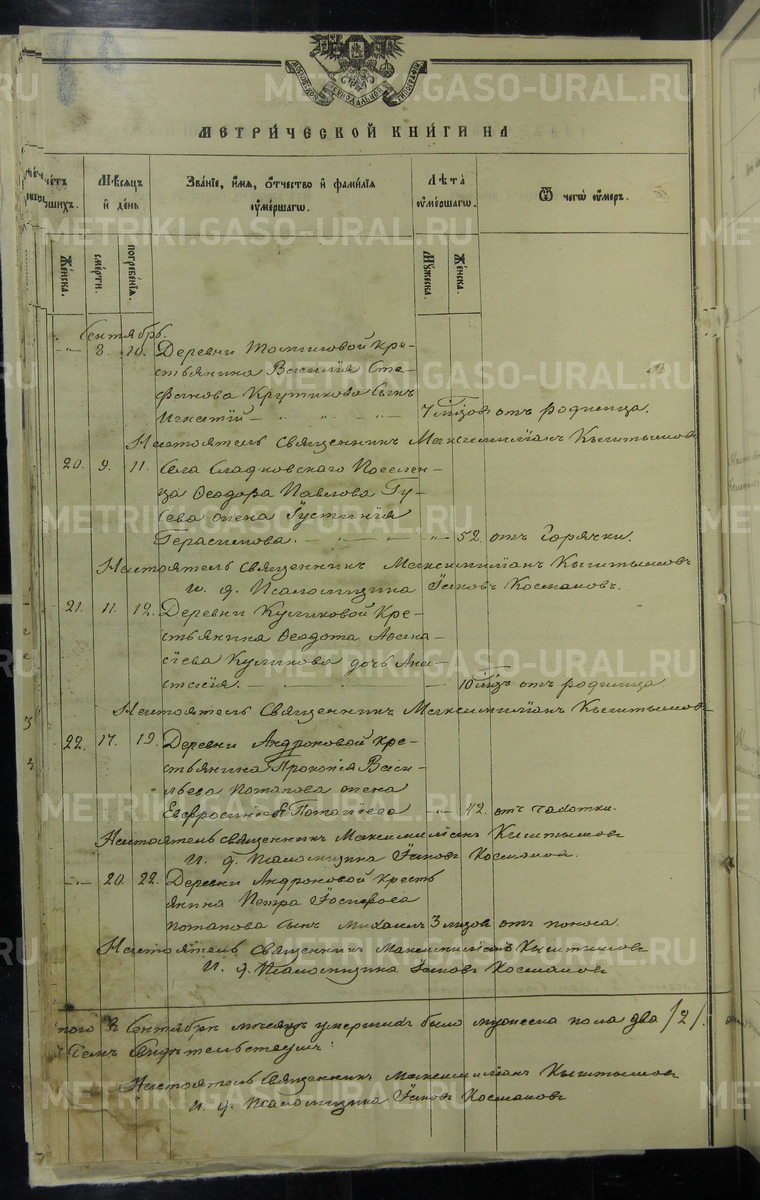 МОСКОВСКОЙ СѴНОДАЛЬНОЙ ТИПОГРАФІИ
МЕТРИ́ЧЕСКОЙ КНИ́ГИ НА
Мѣ́сяцъ и҆ де́нь
Зва́нїе, и҆́мя, ѻ҆́тчество и҆ фами́лїя ᲂу҆ме́ршагѡ.
Лѣ́та ᲂу҆ме́ршагѡ.
Ѿ чегѡ̀ ᲂу҆́меръ.
Же́нска.
сме́рти.
погребе́нїя.
Мꙋ́жеска.
Же́нска.
Сентябрь.
" 8. 10. Деревни кре-
стьянина Василія Сте-
фанова Крутикова сынъ
Игнатій — " — " — 7 мѣс. отъ родимца.
Настоятель Священникъ Максимиліанъ Кыштымовъ
20. 9. 11. Села Сладковскаго Поселен-
ца Ѳеодора Павлова Гу-
сева жена Іустинія
Герасимова. — " — 52. отъ Горячки.
Настоятель Священникъ Максимиліанъ Кыштымовъ
И. д. Псаломщика Іаковъ Космаковъ.
21. 11. 12. Деревни Куликовой Кре-
стьянина Ѳеодота
Куликова дочь Ана-
стасія. — 10 мѣс. отъ родимца
Настоятель Священникъ Максимиліанъ Кыштымовъ
22. 17. 19. Деревни Андроновой Кре-
стьянина Прокопія Васи-
льева Потапова жена
Евфросинія — " 42. отъ чахотки.
Настоятель Священникъ Максимиліанъ Кыштымовъ
И. д. Псаломщика Іаковъ Космаковъ.
" 20. 22. Деревни Андроновой Кресть
янина Петра Іосифова
Потапова сынъ Михаилъ 3 отъ поноса.
Настоятель Священникъ Максимиліанъ Кыштымовъ
И. д. Псаломщика Іаковъ Космаковъ
Сентябрь мѣсяцъ умершихъ было мужеска пола два /2/.
Симъ
Настоятель Священникъ Максимиліанъ Кыштымовъ
И. д. Псаломщика Іаковъ Космаковъ
METRIKI.GASO-URAL.RU